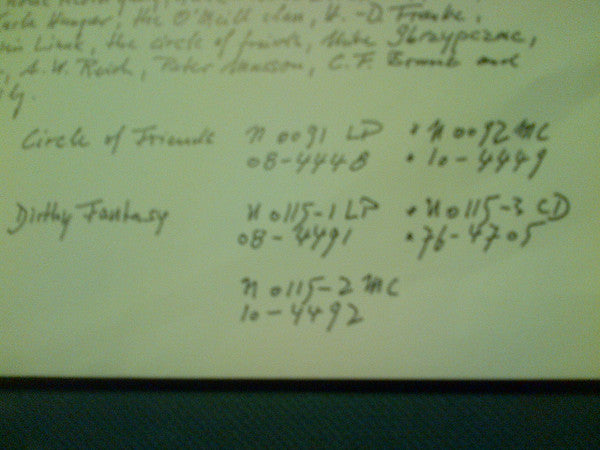 the O'Neill clan, H.-D. Franke,
Link, the circle of friends, Mike
A. W. Reich, Peter C. F. and
Circle of Friends N 0091 LP * N 0092 MC
08-4448 * 10-4449
Dirthy Fantasy N 0115-1 LP * N 0115-3 CD
08-4491 * 76-4705
N 0115-2 MC
10-4492